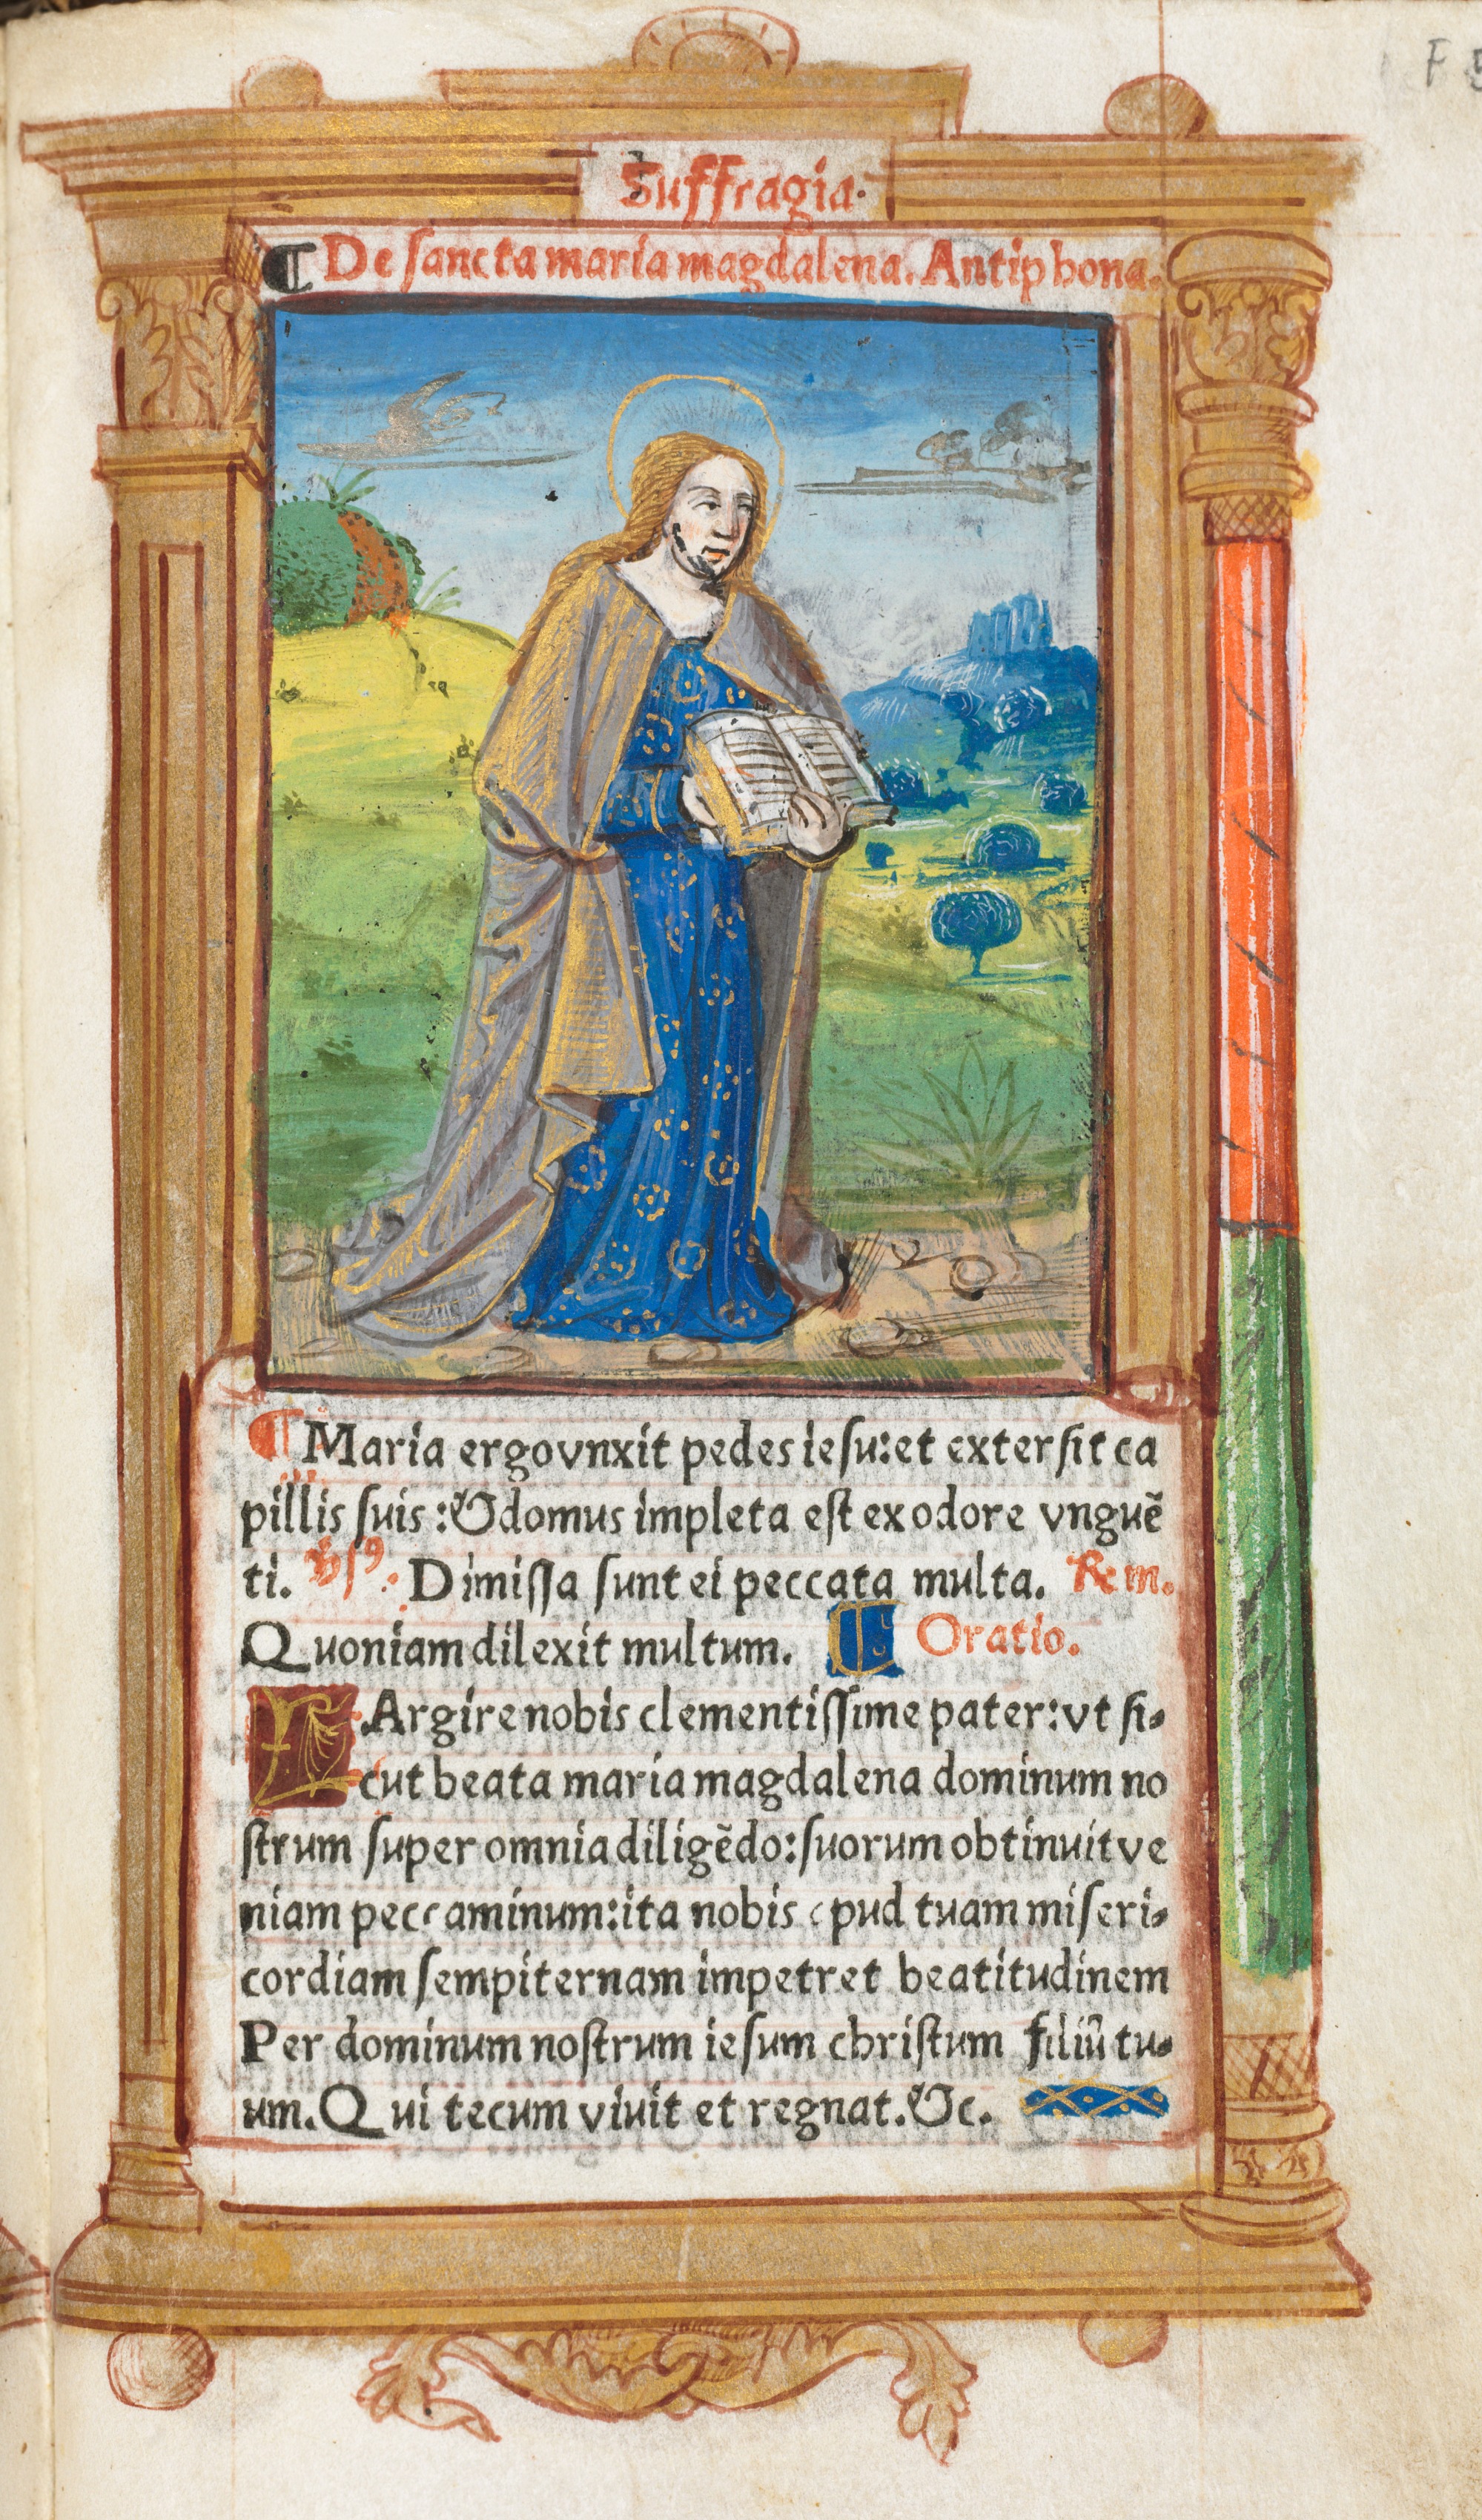 Suffragia.
¶ De ſancta maria magdalena. Antiphona.
¶ Maria ergo vnxit pedes ieſu: et exterſit ca
pillis ſuis: & domus impleta eſt ex odore vnguẽ
ti. v̾ſꝰ. Dimiſſa ſunt ei peccata multa. Rem.
Quoniam dilexit multum. ¶ Oratio.
LArgire nobis clementiſſime pater: vt ſi-
cut beata maria magdalena dominum no
ſtrum ſuper omnia diligẽdo: ſuorum obtinuit ve
niam peccaminum: ita nobis apud tuam miſeri-
cordiam ſempiternam impetret beatitudinem
Per dominum noſtrum ieſum chriſtum filiũ tu-
um. Qui tecum viuit et regnat. &c.